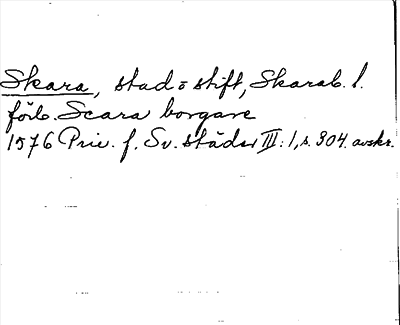 Skara, stad o stift, Skarab. l.
förb. Scara borgare
1576 Priv. f. Sv. städer III: 1, s. 304. avskr.